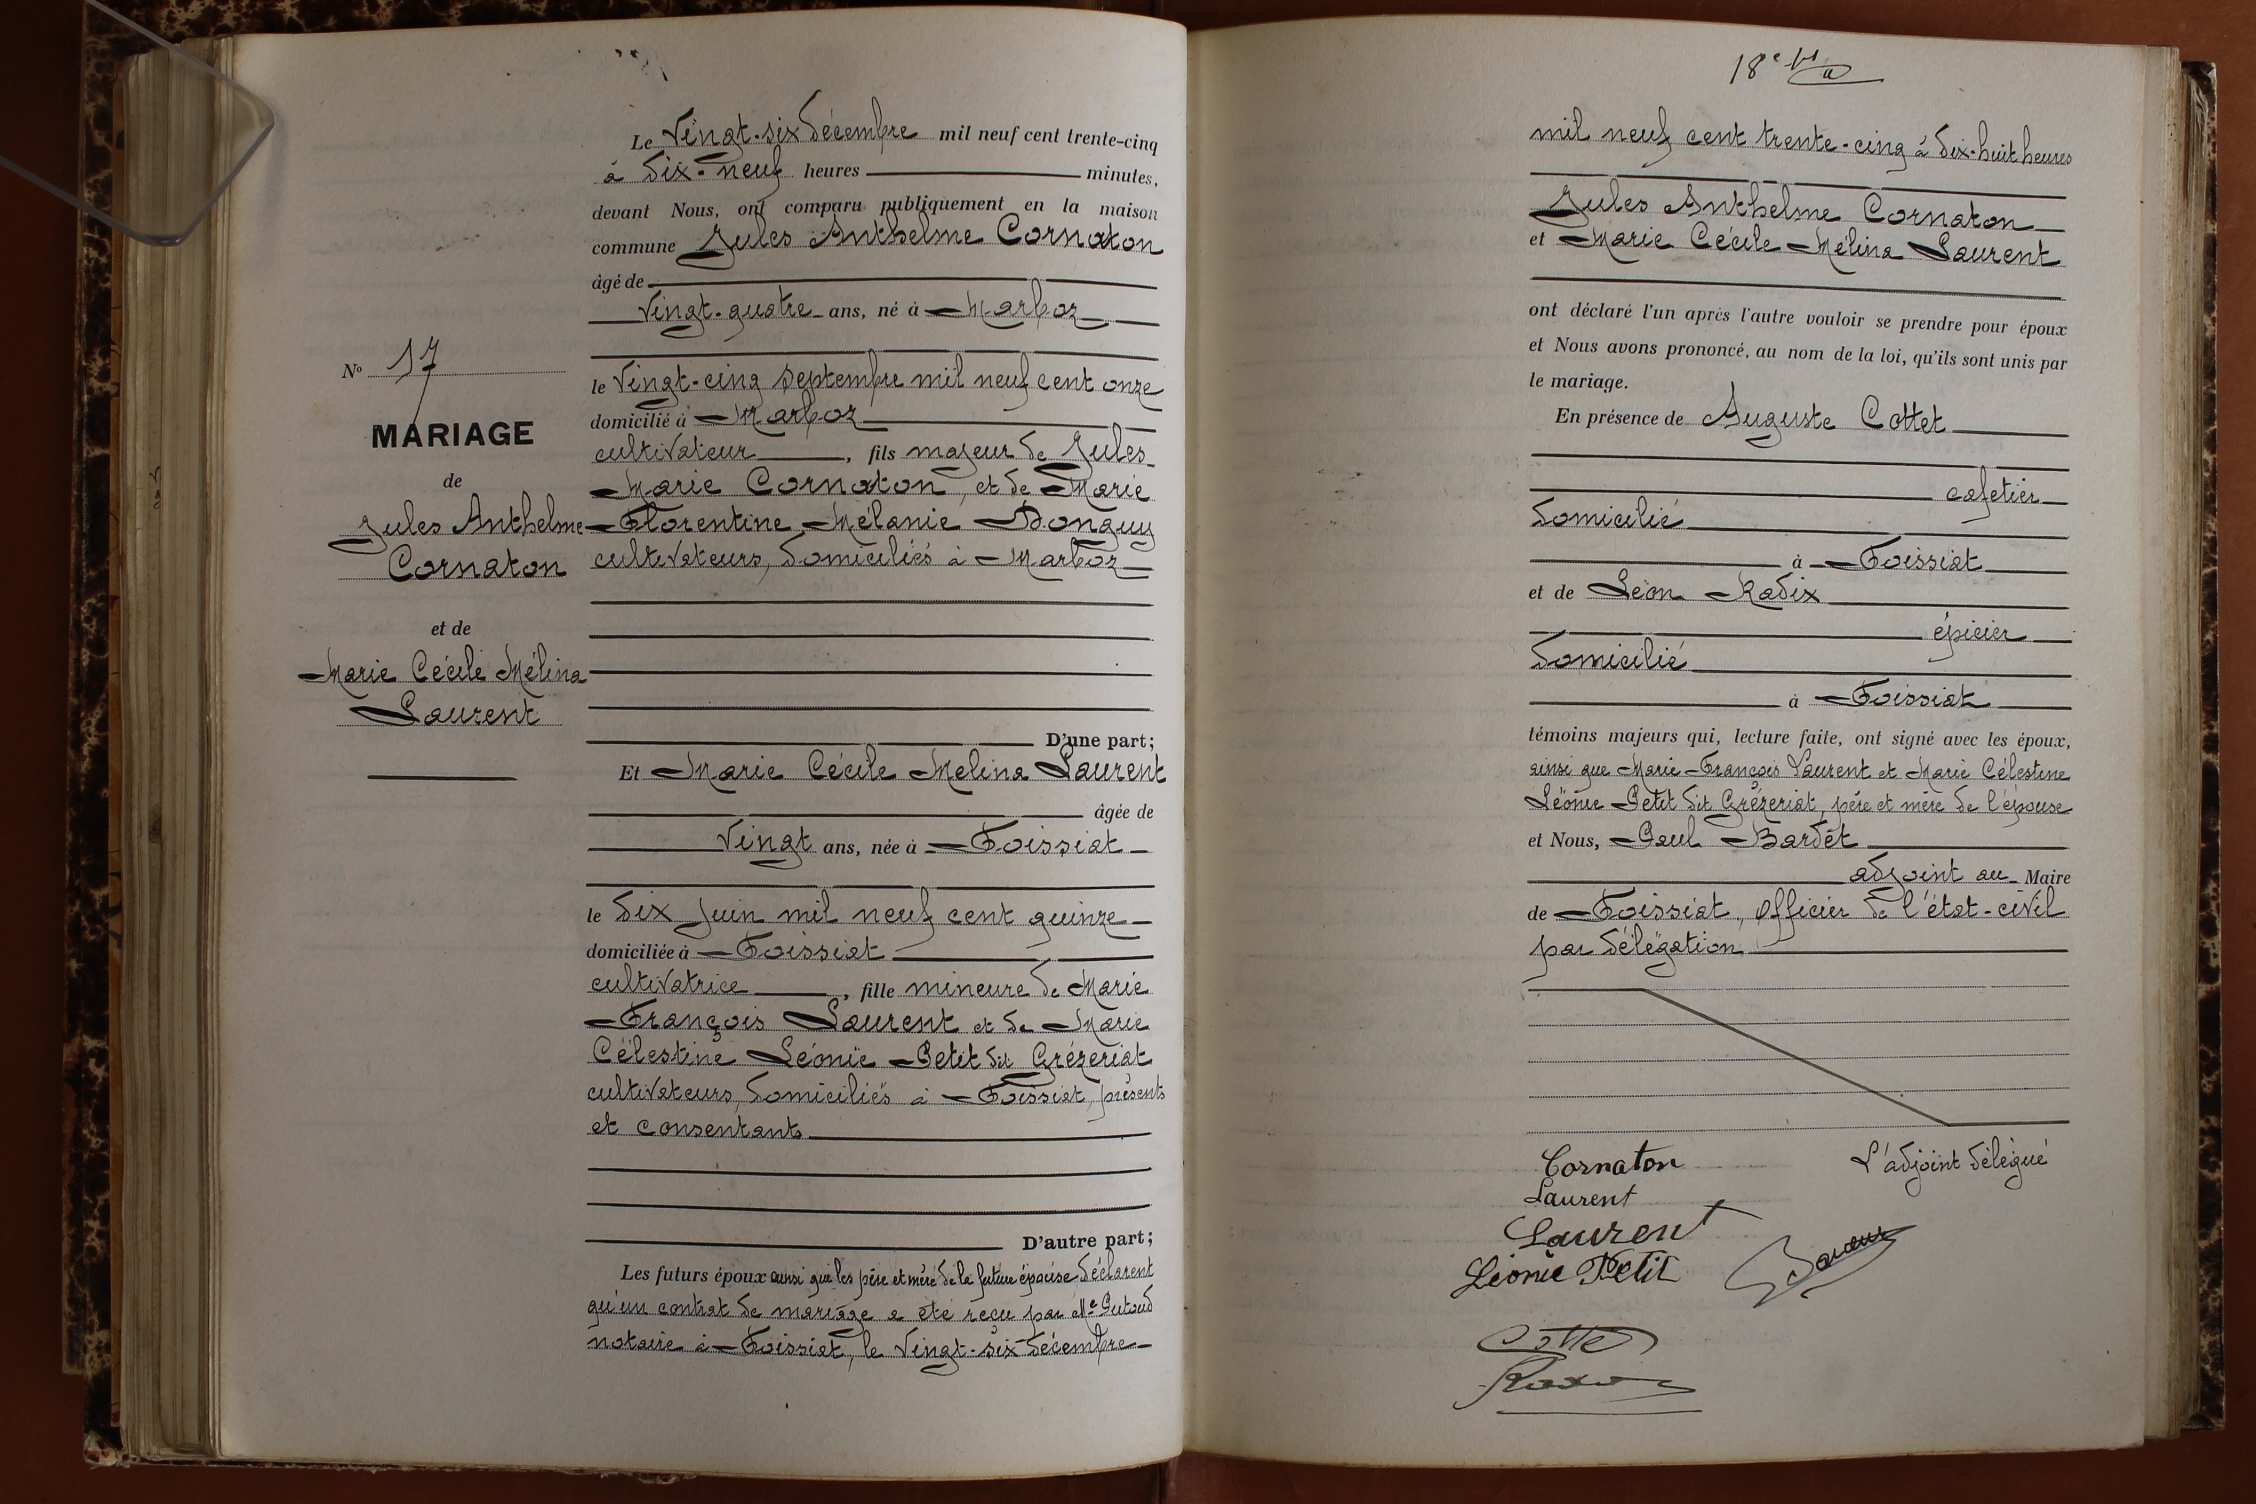 Le Vingt-six décembre mil neuf cent trente-cinq
à dix-neuf heures minutes,
devant Nous, ont comparu publiquement en la maison
commune Jules Anthelme Cornaton
âgé de
vingt-quatre ans, né à Marboz
le vingt-cinq septembre mil neuf cent onze
domicilié à Marboz
cultivateur, fils majeur de Jules
Marie Cornaton, et de Marie
Florentine Mélanie Donguy
cultivateurs, domiciliés à Marboz
D'une part;
Et Marie Cécile Mélina Laurent
âgée de
vingt ans, née à Foissiat
le dix juin mil neuf cent quinze
domiciliée à Foissiat
cultivatrice, fille mineure de Marie
François Laurent et de Marie
Célestine Léonie Petit dit Grézeriat
cultivateurs, domiciliés à Foissiat, présents
et consentants
D'autre part;
Les futurs époux ainsi que les père et mère de la future épouse déclarent
qu'un contrat de mariage a été reçu par Me Putoud
notaire à Foissiat, le vingt-six décembre
No 17
MARIAGE
de
Jules Anthelme
Cornaton
et de
Marie Cécile Mélina
Laurent
18e
mil neuf cent trente-cinq à dix-huit heures
Jules Anthelme Cornaton
et Marie Cécile Mélina Laurent
ont déclaré l'un après l'autre vouloir se prendre pour époux
et Nous avons prononcé, au nom de la loi, qu'ils sont unis par
le mariage.
En présence de Auguste Cottet
cafetier
domicilié
à Foissiat
et de Léon Radix
épicier
domicilié
à Foissiat
témoins majeurs qui, lecture faite, ont signé avec les époux,
ainsi que Marie François Laurent et Marie Célestine
Léonie Petit dit Grézeriat, père et mère de l'épouse
et Nous, Paul Bardet
adjoint au Maire
de Foissiat, officier de l'état-civil
par délégation
Cornaton L'adjoint délégué
Laurent
Laurent
Léonie Petit